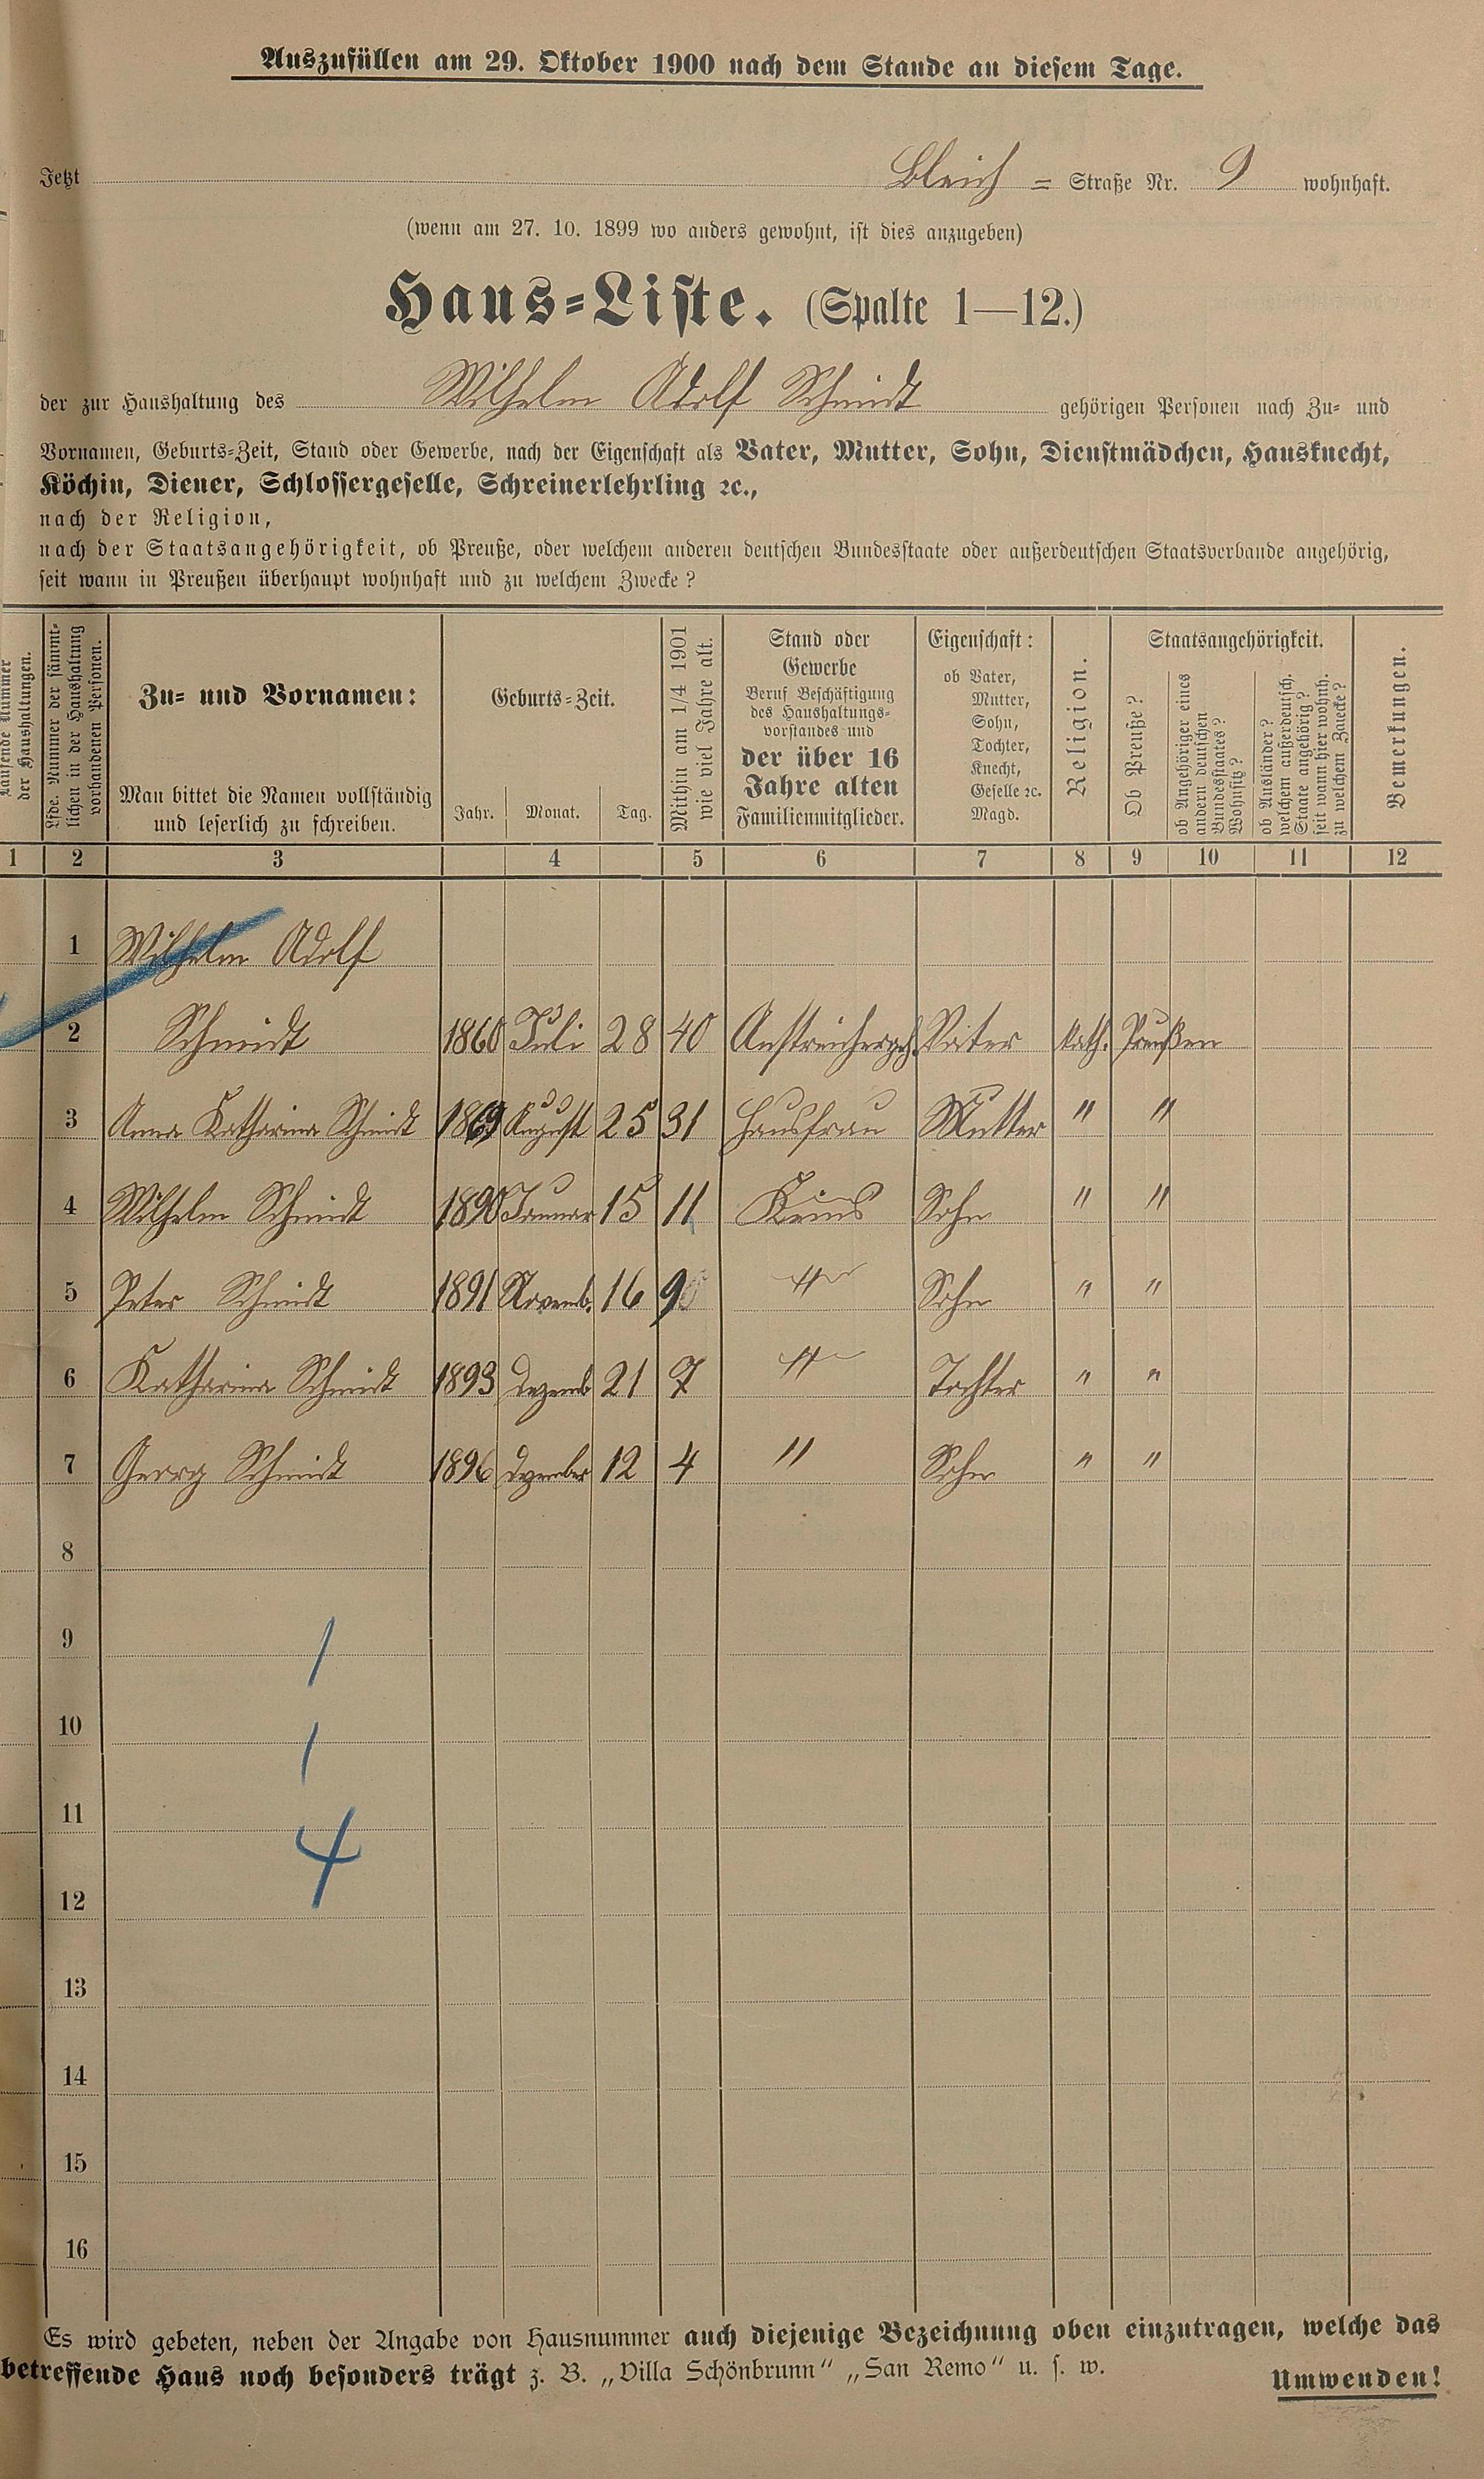 Auszufüllen am 29. Oktober 1900 nach dem Stande an diesem Tage.
Jetzt Bleich = Straße Nr. 9 wohnhaft.
(wenn am 27. 10. 1899 wo anders gewohnt, ist dies anzugeben)
Haus=Liste. (Spalte 1—12.)
der zur Haushaltung des Wilhelm Adolf Schmidt gehörigen Personen nach Zu= und
Vornamen, Geburts=Zeit, Stand oder Gewerbe, nach der Eigenschaft als Vater, Mutter, Sohn, Dienstmädchen, Hausknecht,
Köchin, Diener, Schlossergeselle, Schreinerlehrling ꝛc.,
nach der Religion,
nach der Staatsangehörigkeit, ob Preuße, oder welchem anderen deutschen Bundesstaate oder außerdeutschen Staatsverbande angehörig,
seit wann in Preußen überhaupt wohnhaft und zu welchem Zwecke?
Laufende Nummer
der Haushaltungen.
Lfde. Nummer der sämmt=
lichen in der Haushaltung
vorhandenen Personen.
Zu= und Vornamen:
Man bittet die Namen vollständig
und leserlich zu schreiben.
Geburts=Zeit.
Jahr. Monat. Tag.
Mithin am 1/4 1901
wie viel Jahre alt.
Stand oder
Gewerbe
Beruf Beschäftigung
des Haushaltungs=
vorstandes und
der über 16
Jahre alten
Familienmitglieder.
Eigenschaft:
ob Vater,
Mutter,
Sohn,
Tochter,
Knecht,
Geselle ꝛc.
Magd.
Religion.
Staatsangehörigkeit.
Ob Preuße?
ob Angehöriger eines
andern deutschen
Bundesstaates?
Wohnsitz?
ob Ausländer?
welchem außerdeutsch.
Staate angehörig?
seit wann hier wohnh.
zu welchem Zwecke?
Bemerkungen.
1 2 3 4 5 6 7 8 9 10 11 12
1 Wilhelm Adolf
2 Schmidt 1860 Juli 28 40 Anstreichergeh. Vater kath. Preußen
3 Anna Katharina Schmidt 1869 August 25 31 Hausfrau Mutter " "
4 Wilhelm Schmidt 1890 Januar 15 11 Keins Sohn " "
5 Peter Schmidt 1891 Novemb. 16 9 " Sohn " "
6 Katharina Schmidt 1893 Dezemb 21 7 " Tochter " "
7 Georg Schmidt 1896 Dezember 12 4 " Sohn " "
8
9 1
10 1
11
4
12
13
14
15
16
Es wird gebeten, neben der Angabe von Hausnummer auch diejenige Bezeichnung oben einzutragen, welche das
betreffende Haus noch besonders trägt z. B. „Villa Schönbrunn" „San Remo" u. s. w.
Umwenden!